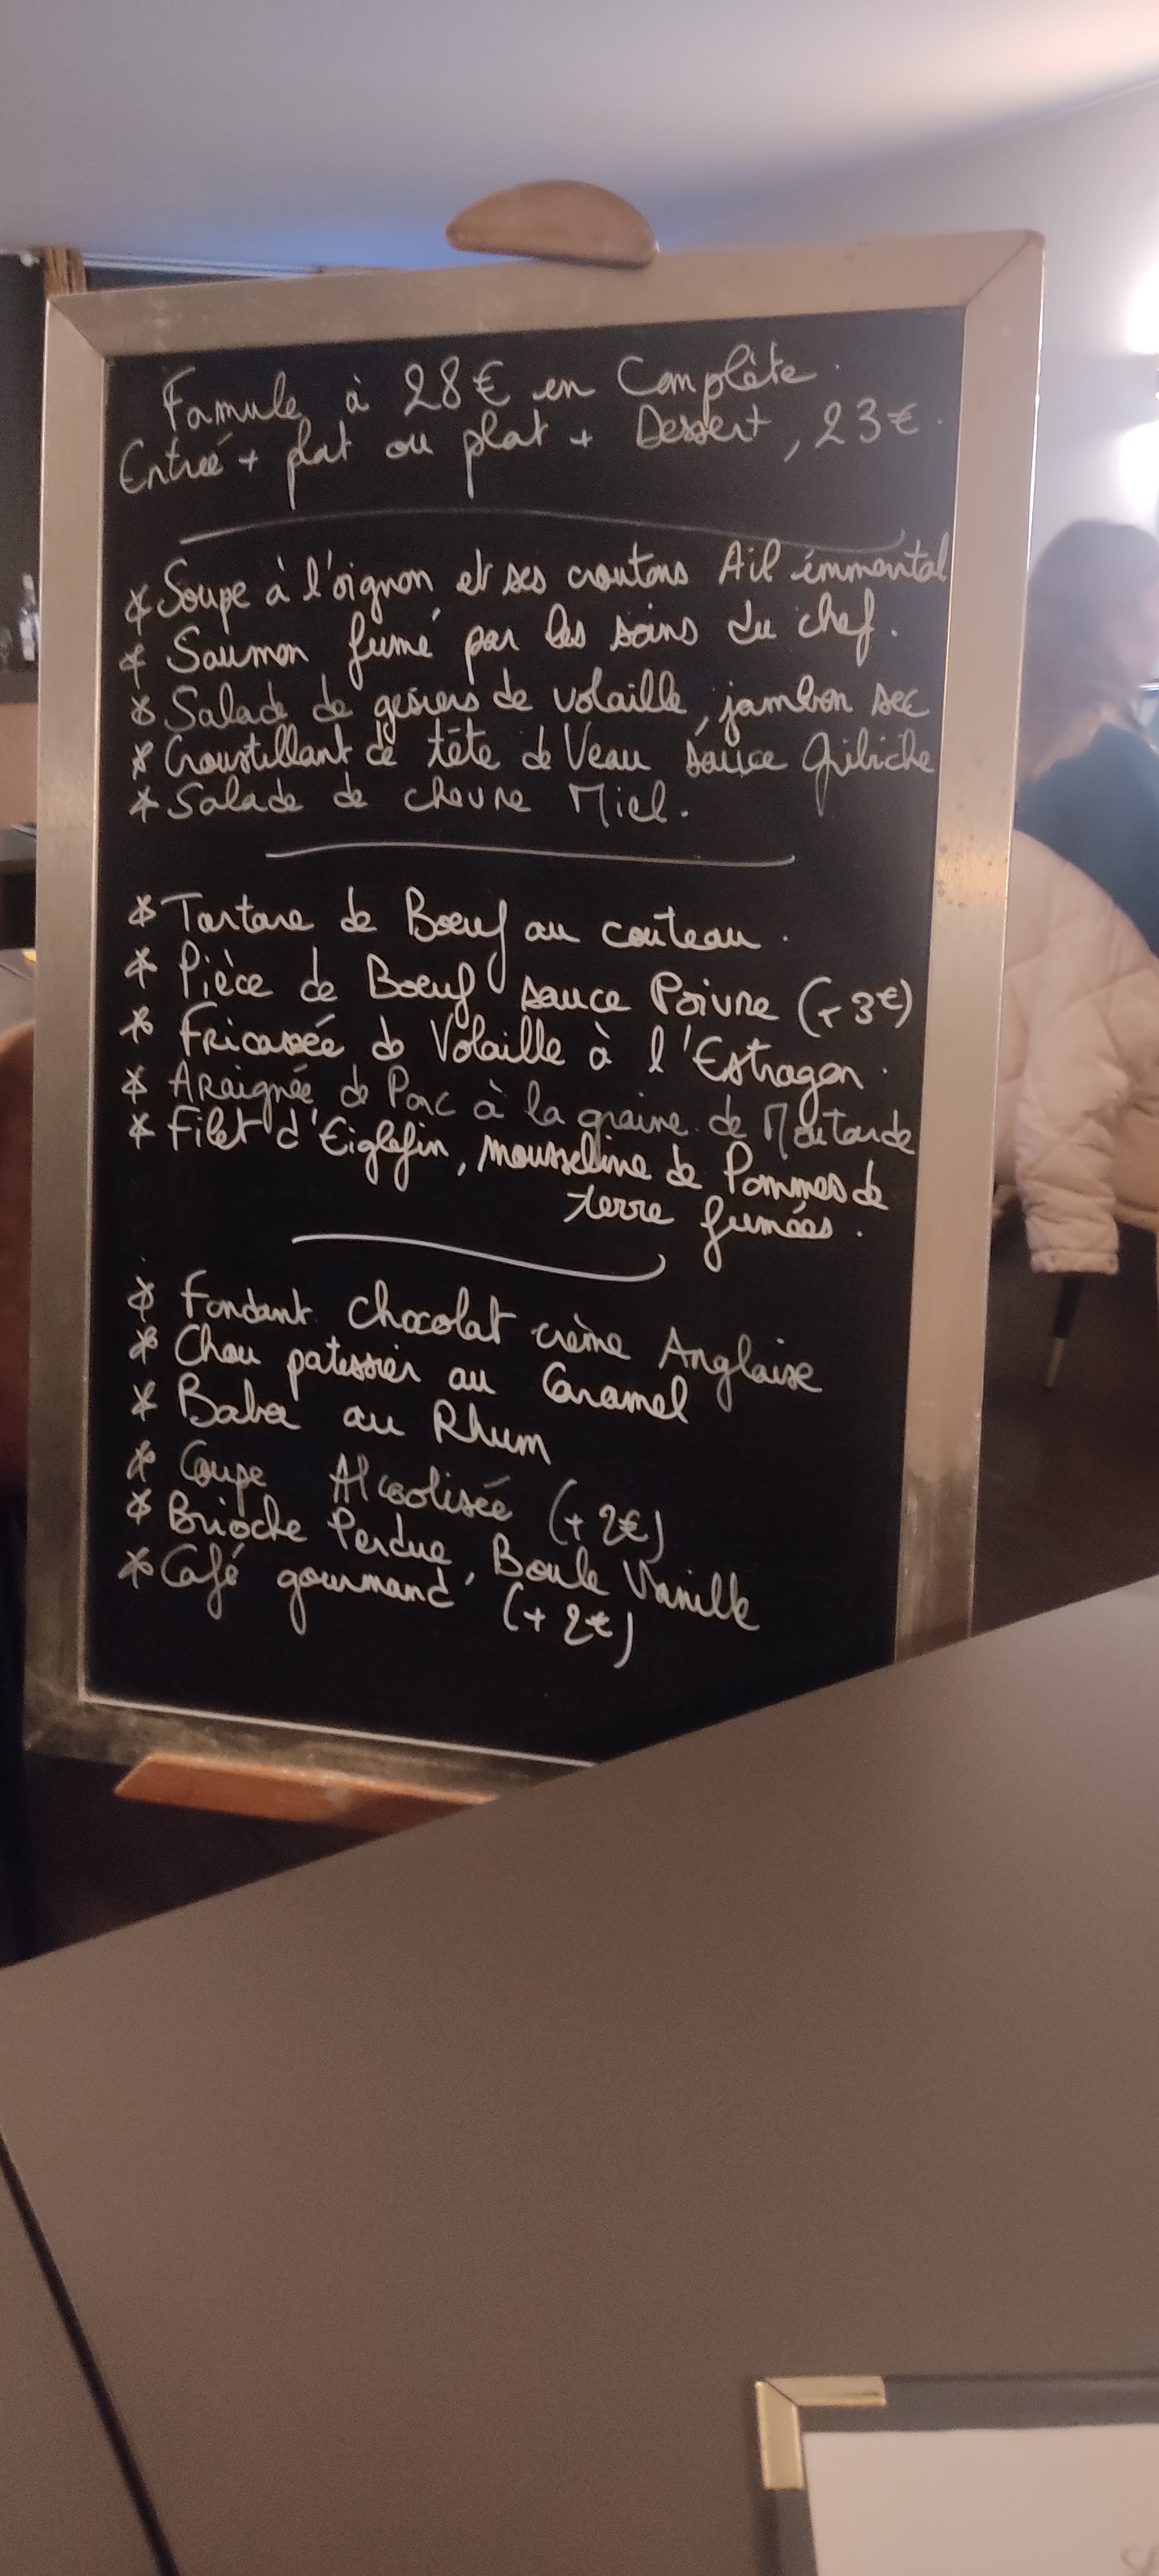 Formule à 28€ en Complète.
Entrée + plat ou plat + Dessert, 23€.
* Soupe à l'oignon et ses croutons Ail émmental
* Saumon fumé par les soins du chef.
* Salade de gésiers de volaille, jambon sec
* Croustillant de tête de Veau sauce Gribiche
* Salade de chèvre Miel.
* Tartare de Boeuf au couteau.
* Pièce de Boeuf sauce Poivre (+3€)
* Fricassée de Volaille à l'Estragon.
* Araignée de Porc à la graine de Moutarde
* Filet d'Eiglefin, mousseline de Pommes de
terre fumées.
* Fondant chocolat crème Anglaise
* Chou patissier au Caramel
* Baba au Rhum
* Coupe Alcoolisée (+2€)
* Brioche Perdue, Boule Vanille
* Café gourmand (+2€)